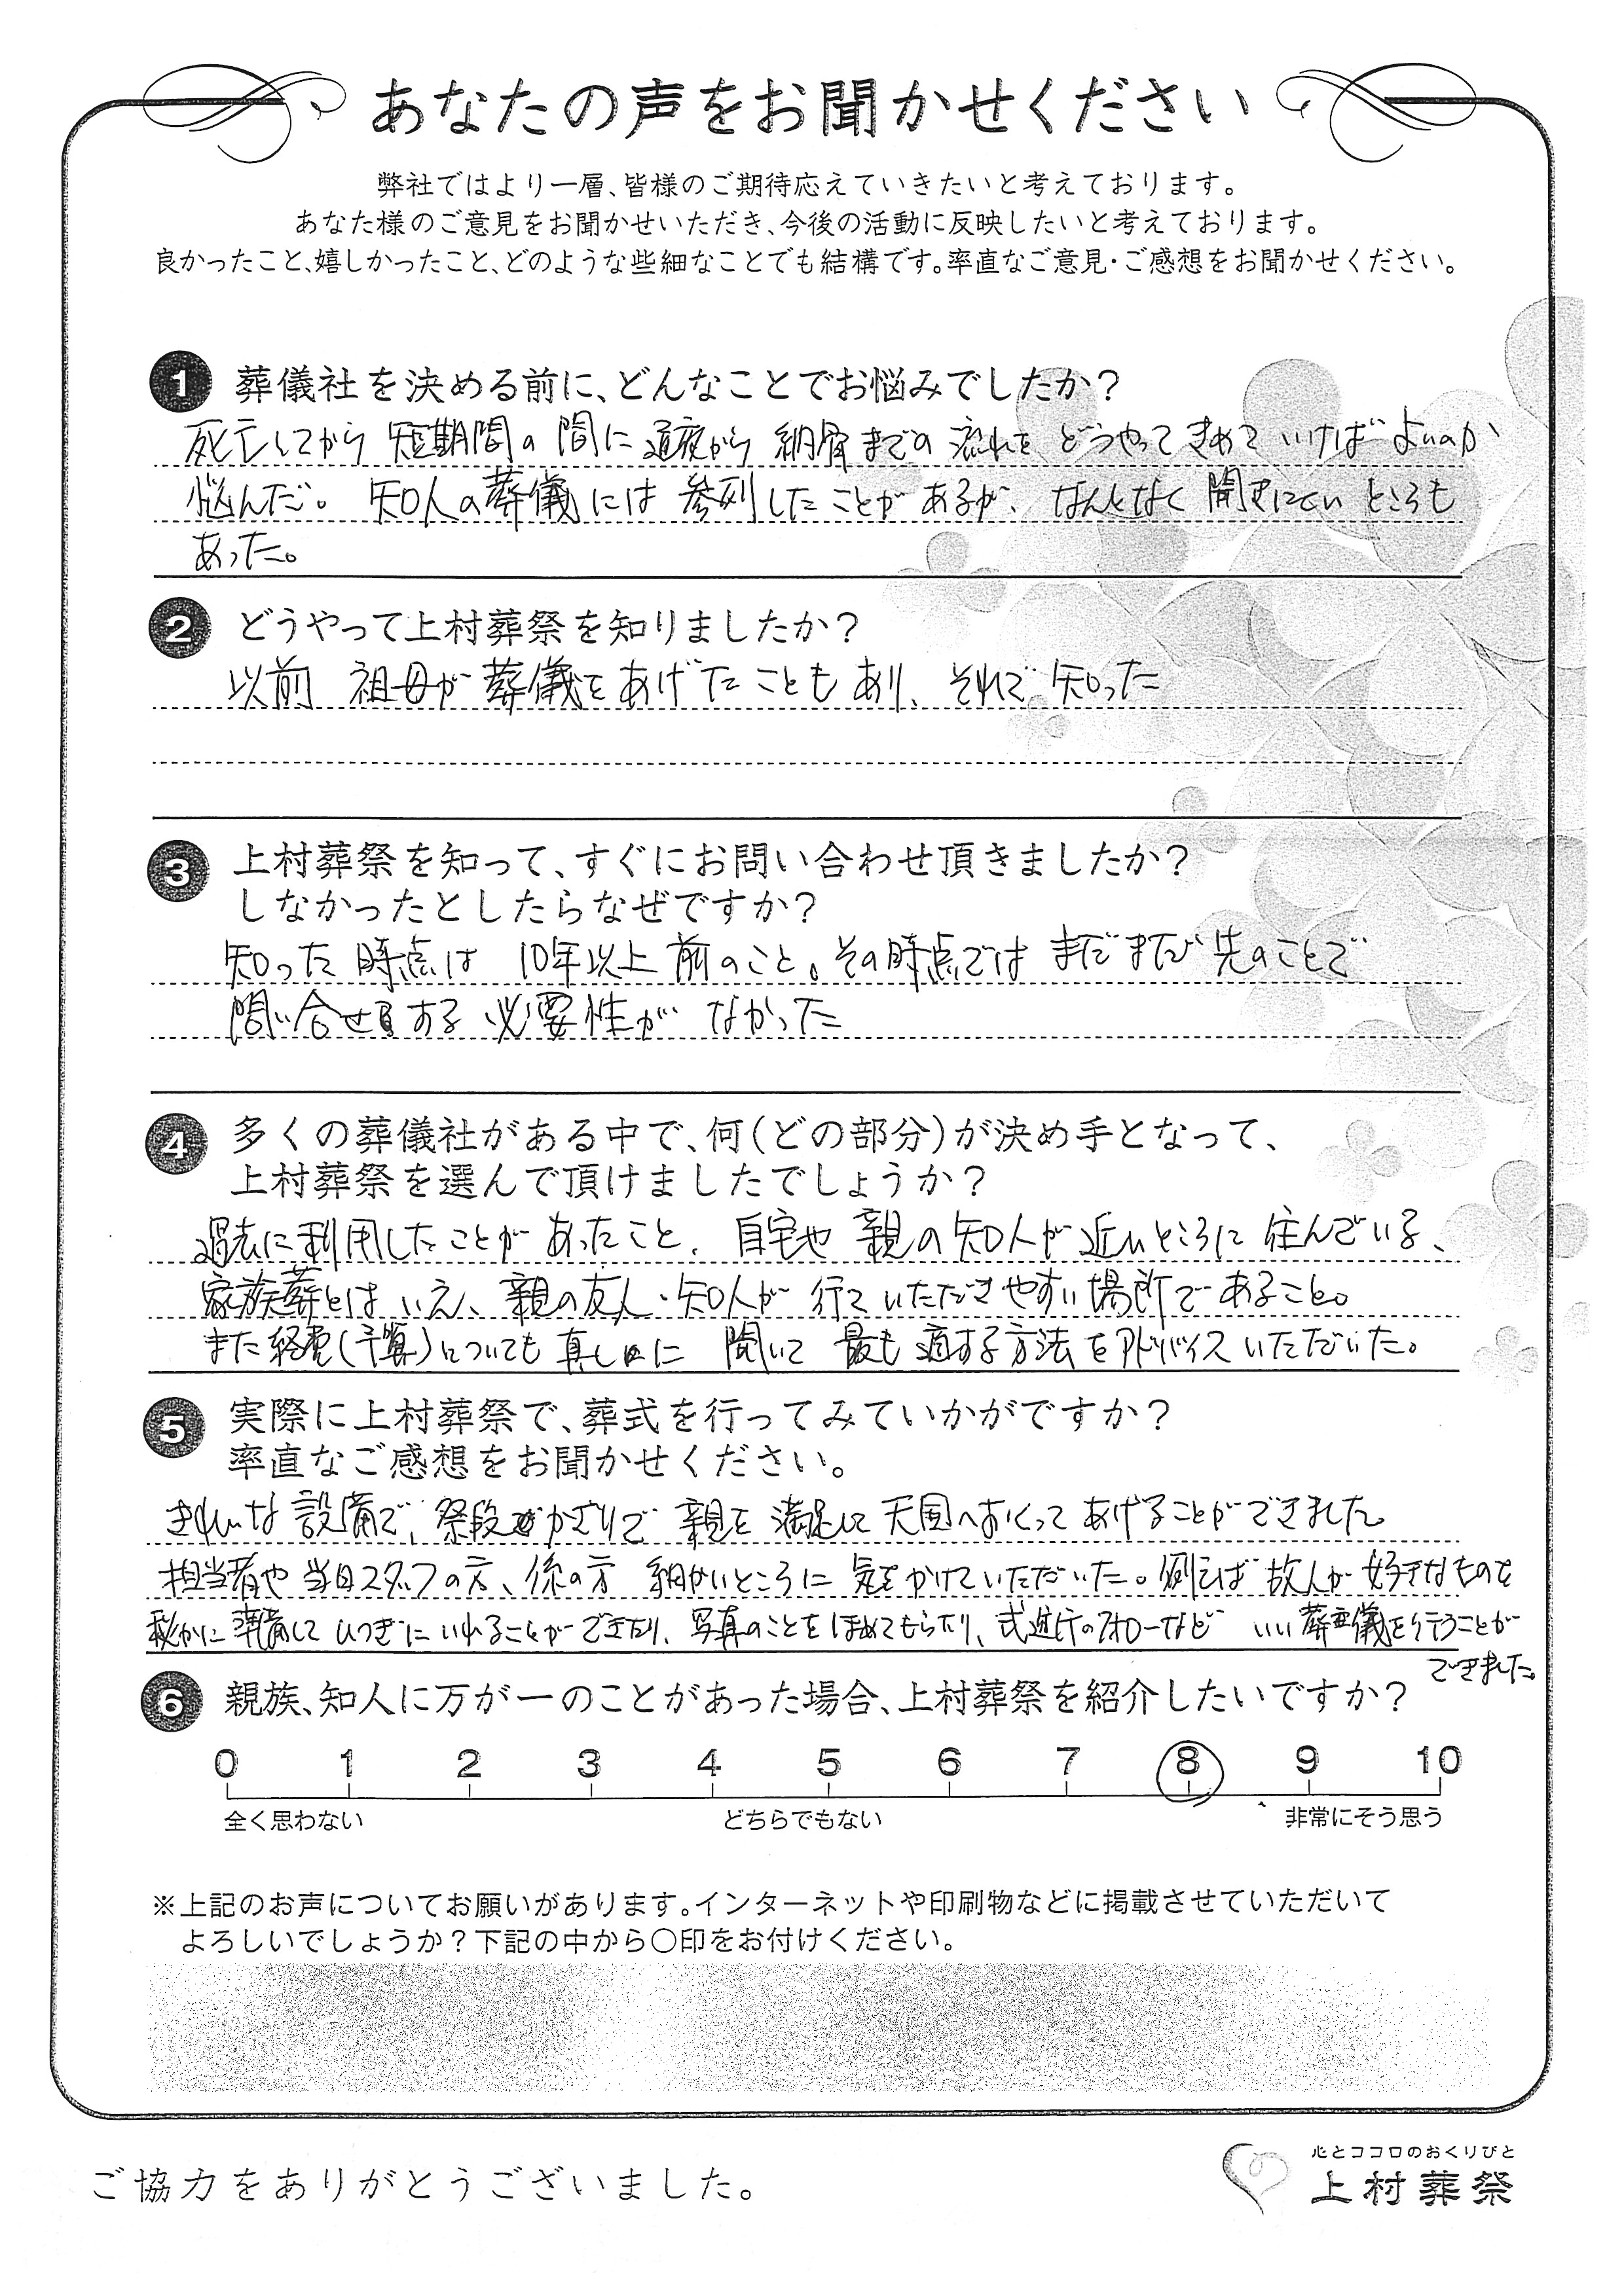 あなたの声をお聞かせください
弊社ではより一層、皆様のご期待応えていきたいと考えております。
あなた様のご意見をお聞かせいただき、今後の活動に反映したいと考えております。
良かったこと、嬉しかったこと、どのような些細なことでも結構です。率直なご意見・ご感想をお聞かせください。
1 葬儀社を決める前に、どんなことでお悩みでしたか?
死亡してから 短期間の間に通夜から 納骨までの 流れを どうやってきめて いけば よいのか
悩んだ。 知人の葬儀には 参列したことが あるが、 なんとなく 聞きにくい ところも
あった。
2 どうやって上村葬祭を知りましたか?
以前 祖母が葬儀をあげたこともあり、それで知った
3 上村葬祭を知って、すぐにお問い合わせ頂きましたか?
しなかったとしたらなぜですか?
知った時点は 10年以上前のこと。その時点では まだまだ先のことで
問い合せする必要性が なかった
4 多くの葬儀社がある中で、何(どの部分)が決め手となって、
上村葬祭を選んで頂けましたでしょうか?
過去に利用したことが あったこと、自宅や 親の知人が近いところに 住んでいる、
家族葬とは いえ、親の友人・知人が 行ていただきやすい場所で あること。
また経費(予算)についても真しに 聞いて 最も適する方法をアドバイスいただいた。
5 実際に上村葬祭で、葬式を行ってみていかがですか?
率直なご感想をお聞かせください。
きれいな設備で、祭段かざりで 親を 満足して天国へおくって あげることができました。
担当者や 当日スタッフの方、係の方 細かいところに 気をかけていただいた。例えば 故人が好きなものを
秘かに準備して ひつぎに いれることができたり、写真のことをほめてもらったり、式進行のフォローなど いい葬儀を行うことが
できました。
6 親族、知人に万が一のことがあった場合、上村葬祭を紹介したいですか?
0 1 2 3 4 5 6 7 8 9 10
全く思わない どちらでもない 非常にそう思う
※上記のお声についてお願いがあります。インターネットや印刷物などに掲載させていただいて
よろしいでしょうか?下記の中から○印をお付けください。
ご協力をありがとうございました。
心とココロのおくりびと
上村葬祭